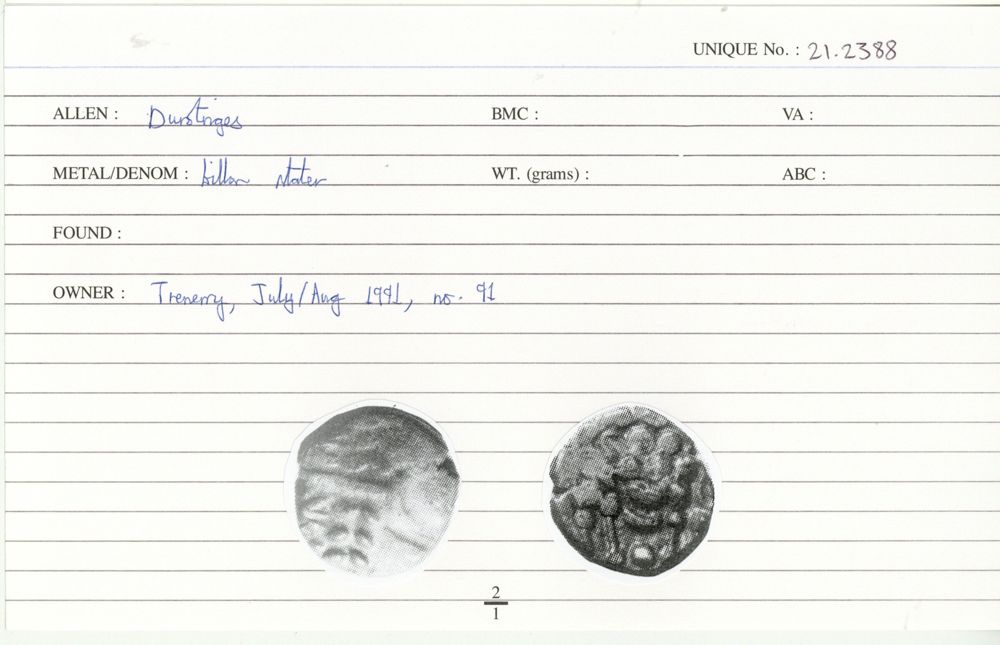 UNIQUE No. : 21.2388
ALLEN : Durotriges BMC : VA :
METAL/DENOM : billon stater WT. (grams) : ABC :
FOUND :
OWNER : Trenerry, July/Aug 1991, no. 91
2
1